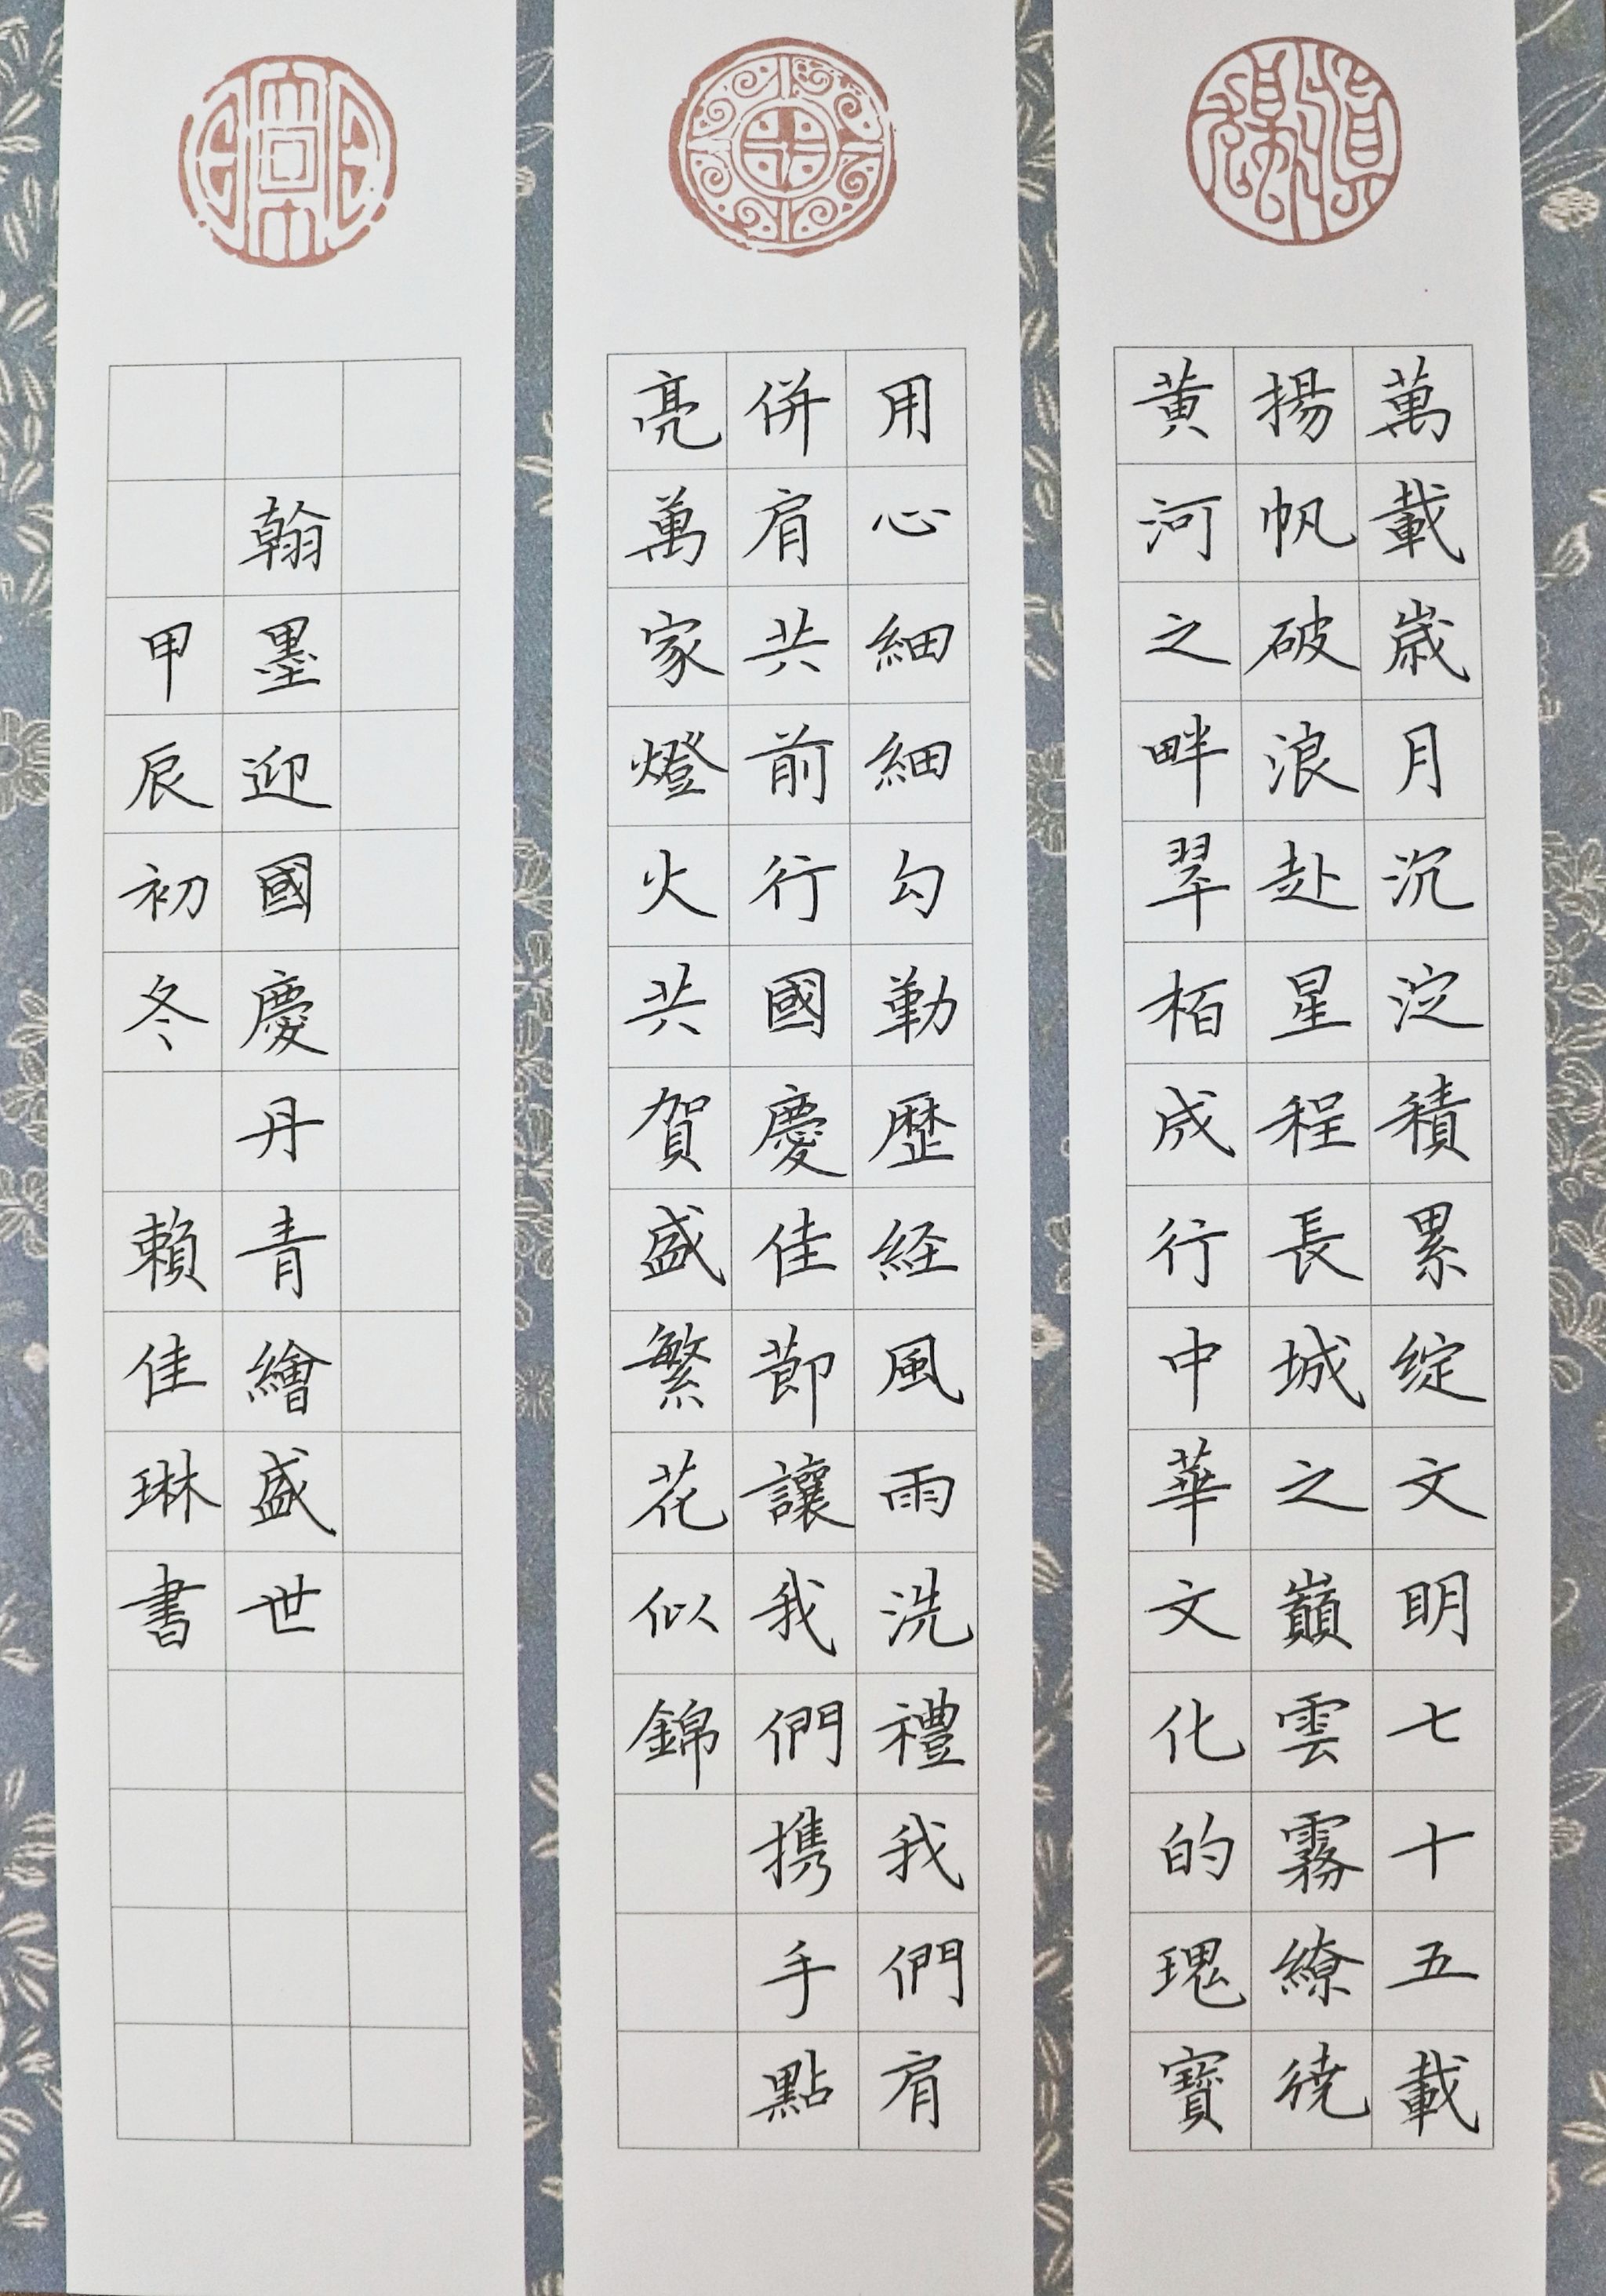 萬載歲月沉淀積累綻文明七十五載
揚帆破浪赴星程長城之巔雲霧繚繞
黄河之畔翠栢成行中華文化的瑰寶
用心細細勾勤歷經風雨洗禮我們肩
併肩共前行國慶佳節讓我們携手點
亮萬家燈火共賀盛繁花似錦
翰墨迎國慶丹青繪盛世
甲辰初冬 賴佳琳書